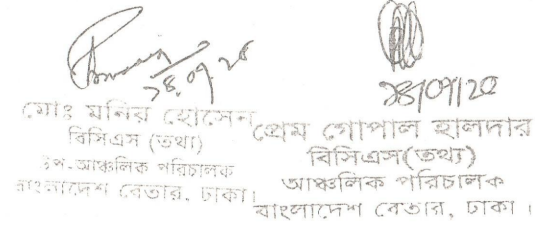 ২৪.০৭.২৫
মোঃ মনির হোসেন
বিসিএস (তথ্য)
উপ-আঞ্চলিক পরিচালক
বাংলাদেশ বেতার, ঢাকা।
প্রেম গোপাল হালদার
বিসিএস(তথ্য)
আঞ্চলিক পরিচালক
বাংলাদেশ বেতার, ঢাকা ।